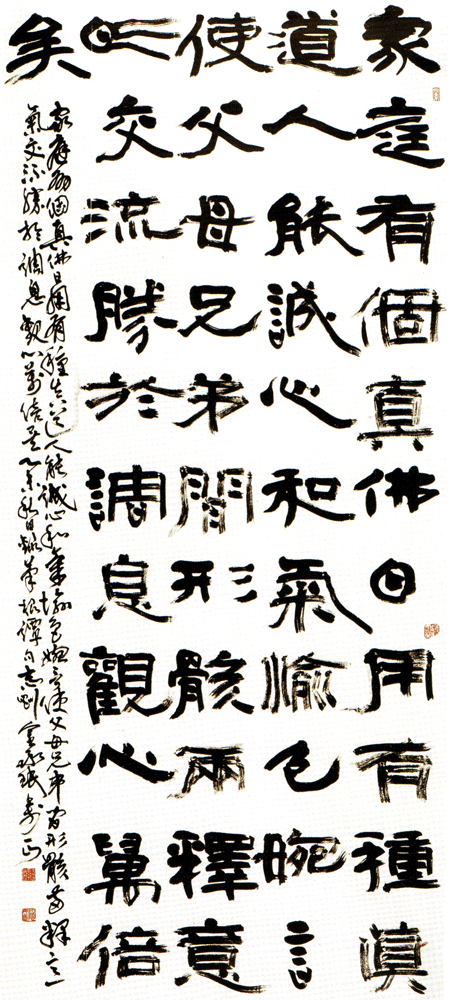 家庭有個真佛日用有種真
道人能誠心和氣愉色婉言
使父母兄弟間形骸兩釋意
氣交流勝於調息觀心萬倍
矣
家庭有個真佛日用有種真道人能誠心和氣愉色婉言使父母兄弟間形骸兩釋意
氣交流勝於調息觀心萬倍矣 秋日錄菜根譚句